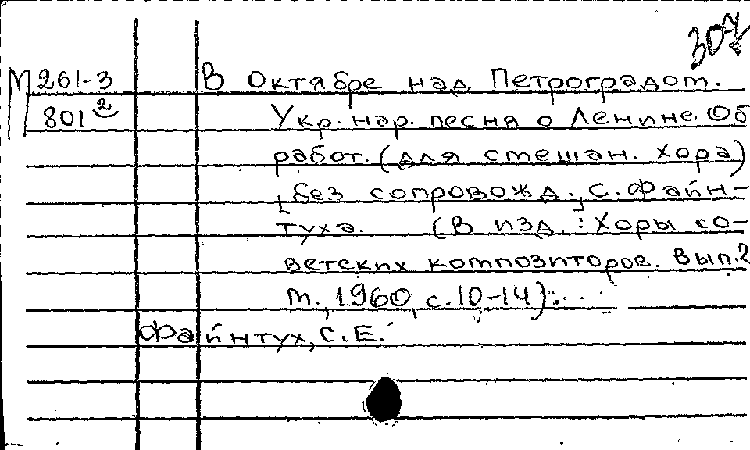 307
М 261-3 В Октябре над Петроградом.
801² Укр. нар. песня о Ленине. Об
работ. (для смешан. хора)
[без сопровожд.] С. Файн-
туха. (В изд.: Хоры со-
ветских композиторов. Вып. 2
М., 1960, с. 10-14).
Файнтух, С. Е.